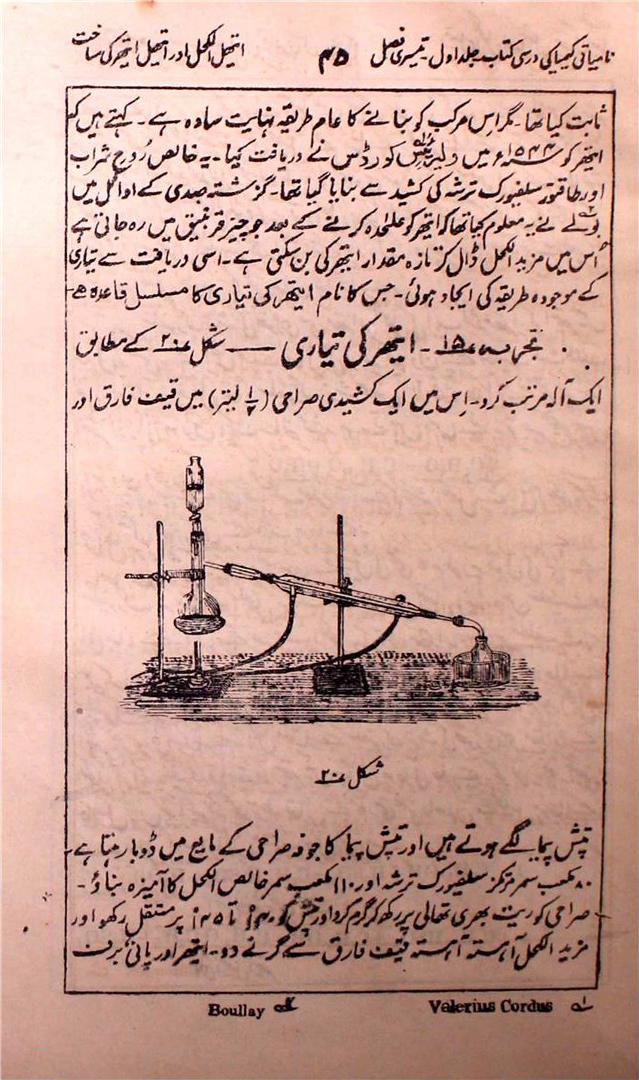 نامیاتی کیمیا کی درسی کتاب۔ جلد اول۔ تیسری فصل ۴۵ ایتھل الکحل اور ایتھل ایتھر کی ساخت
ثابت کیا تھا۔ مگر اس مرکب کو بنانے کا عام طریقہ نہایت سادہ ہے۔ کہتے ہیں کہ
ایتھر کو ۱۵۴۴ء میں ولیریئس کورڈس نے دریافت کیا۔ یہ خالص روح شراب
اور طاقتور سلفیورک ترشہ کی کشید سے بنایا گیا تھا۔ گزشتہ صدی کے اوائل میں
بولے نے یہ معلوم کیا تھا کہ ایتھر کو علٰحدہ کرنے کے بعد جو چیز قرنبیق میں رہ جاتی ہے
اُس میں مزید الکحل ڈال کر تازہ مقدار ایتھر کی بن سکتی ہے۔ اسی دریافت سے تیاری
کے موجودہ طریقہ کی ایجاد ہوئی۔ جس کا نام ایتھر کی تیاری کا مسلسل قاعدہ ہے۔
تجربہ ۱۵۔ ایتھر کی تیاری — شکل ۲۰ کے مطابق
ایک آلہ مرتب کرو۔ اِس میں ایک کشیدی صراحی (½ لیتر) میں قیف فارق اور
شکل ۲۰
تپش پیما لگے ہوتے ہیں اور تپش پیما کا جوفہ صراحی کے مایع میں ڈوبا رہتا ہے۔
۸۰ مکعب سمر مرتکز سلفیورک ترشہ اور ۱۱۰ مکعب سمر خالص الکحل کا آمیزہ بناؤ۔
صراحی کو ریت بھری تھالی پر رکھ کر گرم کرو اور تپش کو ۱۴۰ْ تا ۱۴۵ْ پر مستقل رکھو اور
مزید الکحل آہستہ آہستہ قیف فارق سے گرنے دو۔ ایتھر اور پانی برف
۱ Valerius Cordus ۲ Boullay